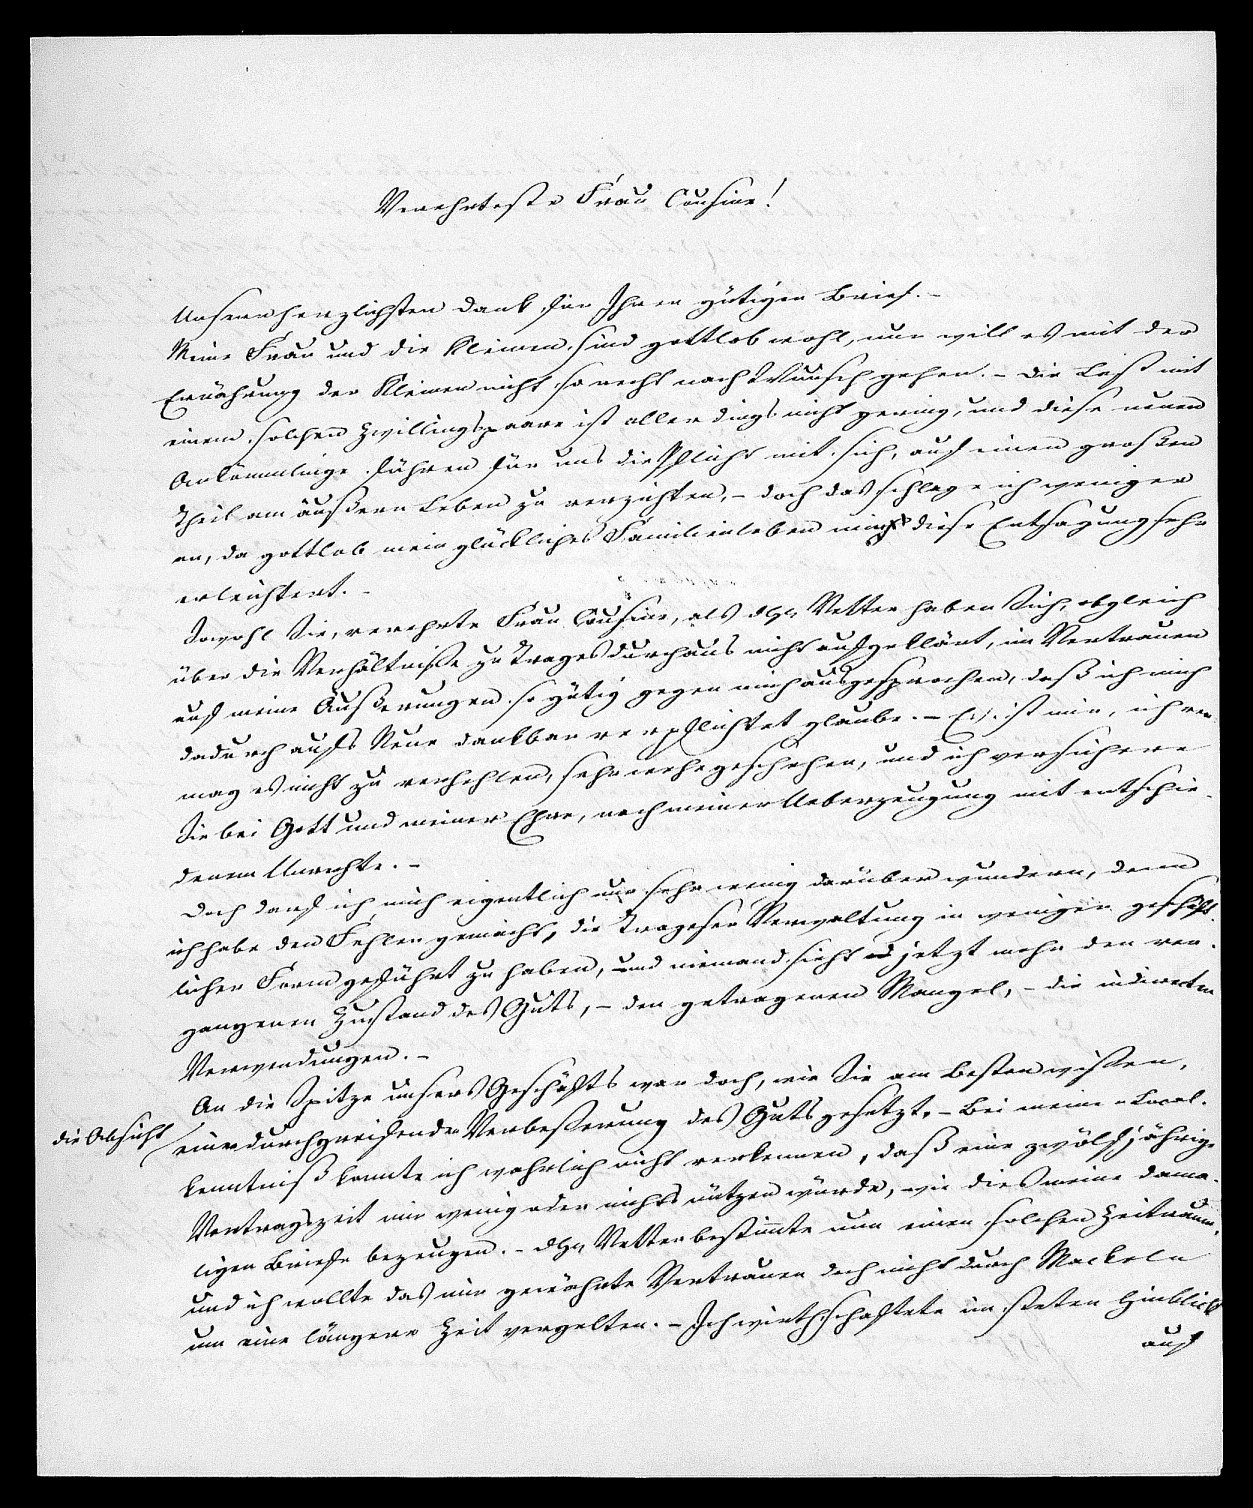 Verehrteste Frau Cousine!
Unsern herzlichsten Dank für Ihren gütigen Brief. –
Meine Frau und die Kleinen sind gottlob wohl, nur will es mit der
Ernährung der Kleinen nicht so recht nach Wunsch gehen. – Die Last mit
einem solchen Zwillingspaare ist allerdings nicht gering, und diese neuen
Ankömmlinge führen für uns die Pflicht mit sich, auf einen großen
Theil am äußern Leben zu verzichten, – doch das schlage ich weniger
an, da gottlob mein glückliches Familienleben mir diese Entsagung sehr
erleichtert. –
Sowohl Sie, verehrte Frau Cousine, als Vetter haben Sich, obgleich
über die Verhältniße zu Trages durchaus nicht aufgeklärt, im Vertrauen
auf meine Äußerungen so gütig gegen mich ausgesprochen, daß ich mich
dadurch aufs Neue dankbar verpflichtet glaube. – Es ist mir, ich ver-
mag es nicht zu verhehlen, sehr wehe geschehen, und ich versichere
Sie bei Gott und meiner Ehre, nach meiner Ueberzeugung mit entschie-
denem Unrechte. –
Doch darf ich mich eigentlich nur sehr wenig darüber wundern, denn
ich habe den Fehler gemacht, die Trageser Verwaltung in weniger geschäft-
licher Form geführt zu haben, und niemand sieht jetzt mehr den ver-
gangenen Zustand des Guts, – den getragenen Mangel, – die indirecten
Verwendungen. –
An die Spitze unsers Geschäfts war doch, wie Sie am Besten wißen,
die Absicht einer durchgreifenden Verbeßerung des Guts gesetzt. – Bei meiner Local-
kenntniß konnte ich wahrlich nicht verkennen, daß eine zwölfjährige
Vertragszeit mir wenig oder nichts nützen würde, wie dies meine dama-
ligen Briefe bezeugen. – Vetter bestimmte nun einen solchen Zeitraum,
und ich wollte das mir gewährte Vertrauen doch nicht durch Mackeln
um eine längere Zeit vergelten. – Ich wirthschaftete im steten Hinblick
auf